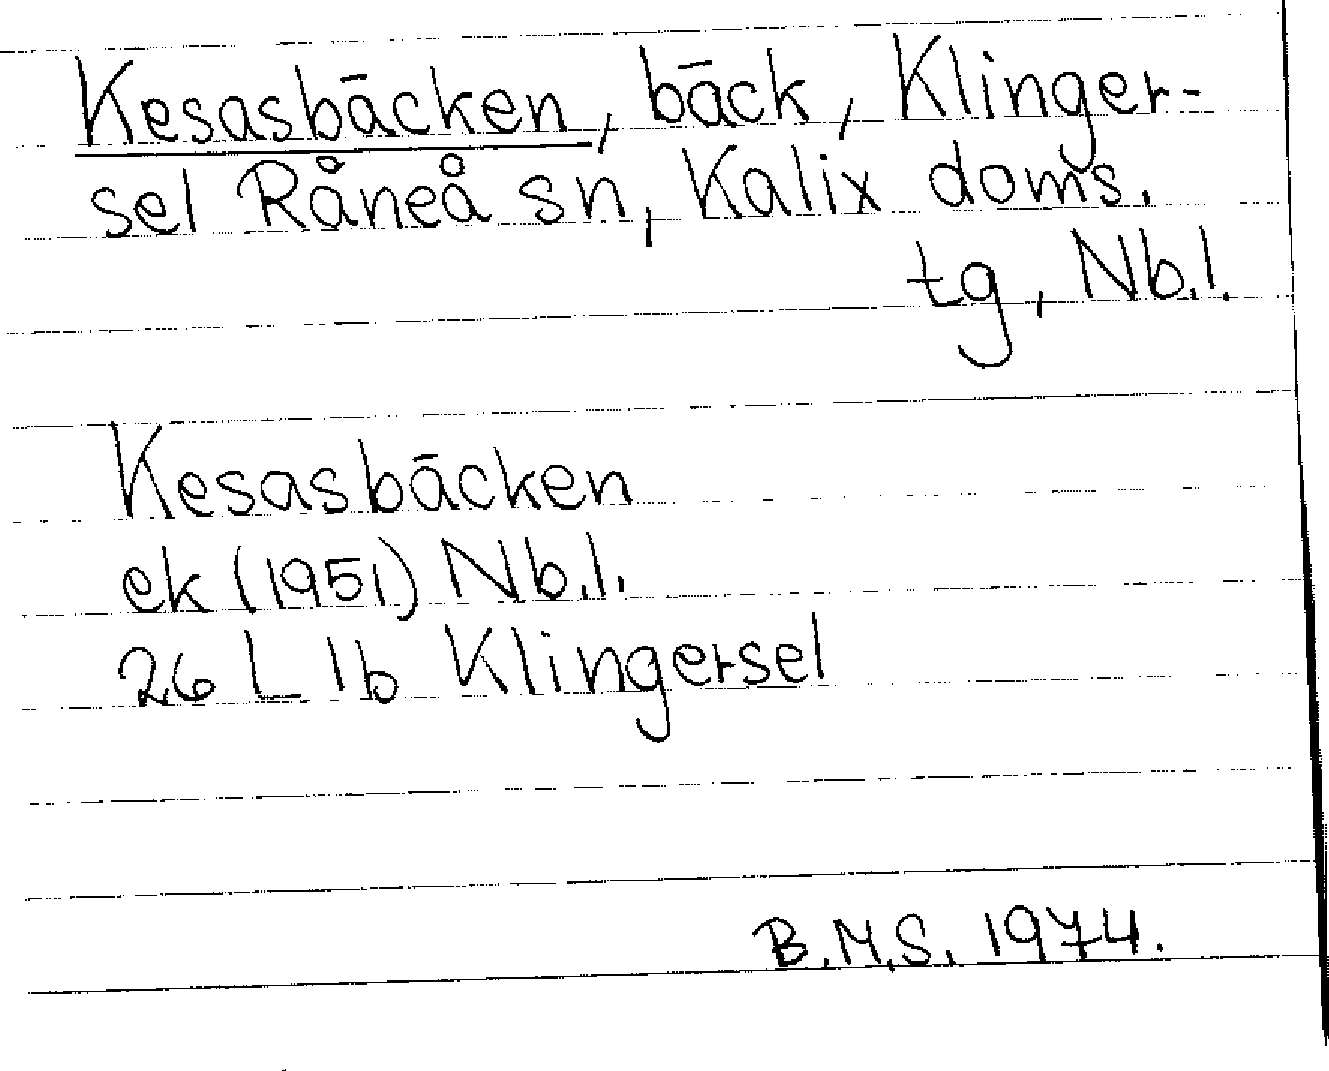 Kesasbäcken, bäck, Klinger-
sel Råneå sn, Kalix doms.
tg, Nb.l.
Kesasbäcken
ek (1951) Nb.l.
26 L Ib Klingersel
B.M.S. 1974.